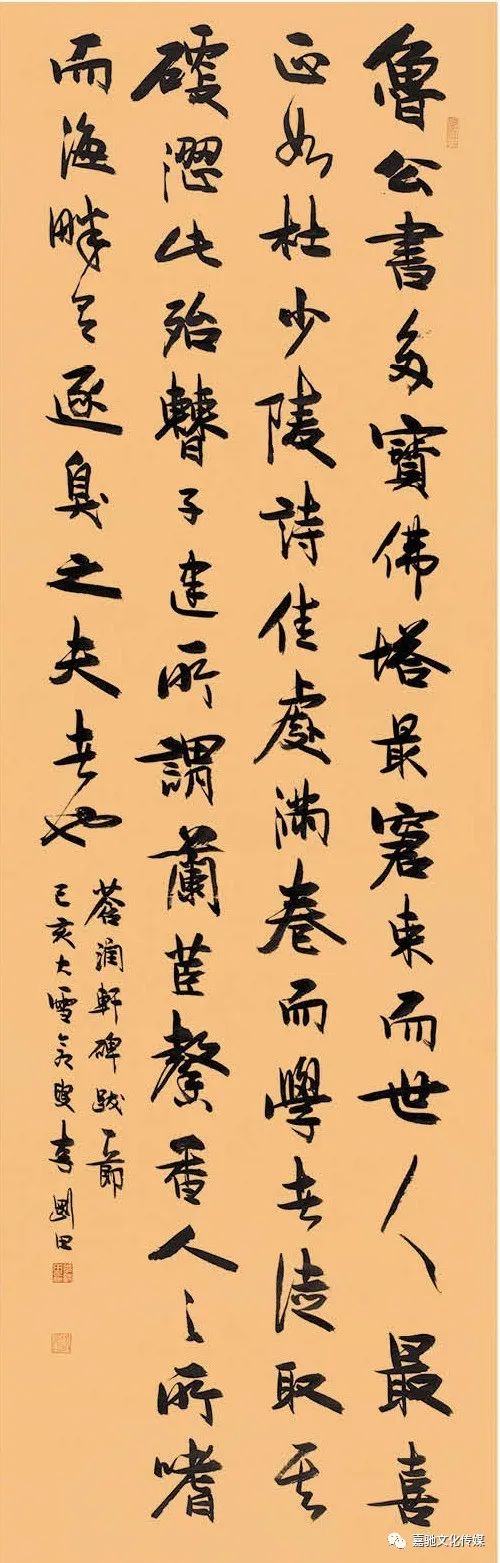 魯公書多寶佛塔最窘束而世人最喜
正如杜少陵詩佳處滿卷而學者徒取其
澀此殆曹子建所謂蘭茝馨香人々所嗜
而海畔有逐臭之夫者也
蒼潤軒碑跋一節
己亥大雪叟李剛田
嘉驰文化传媒